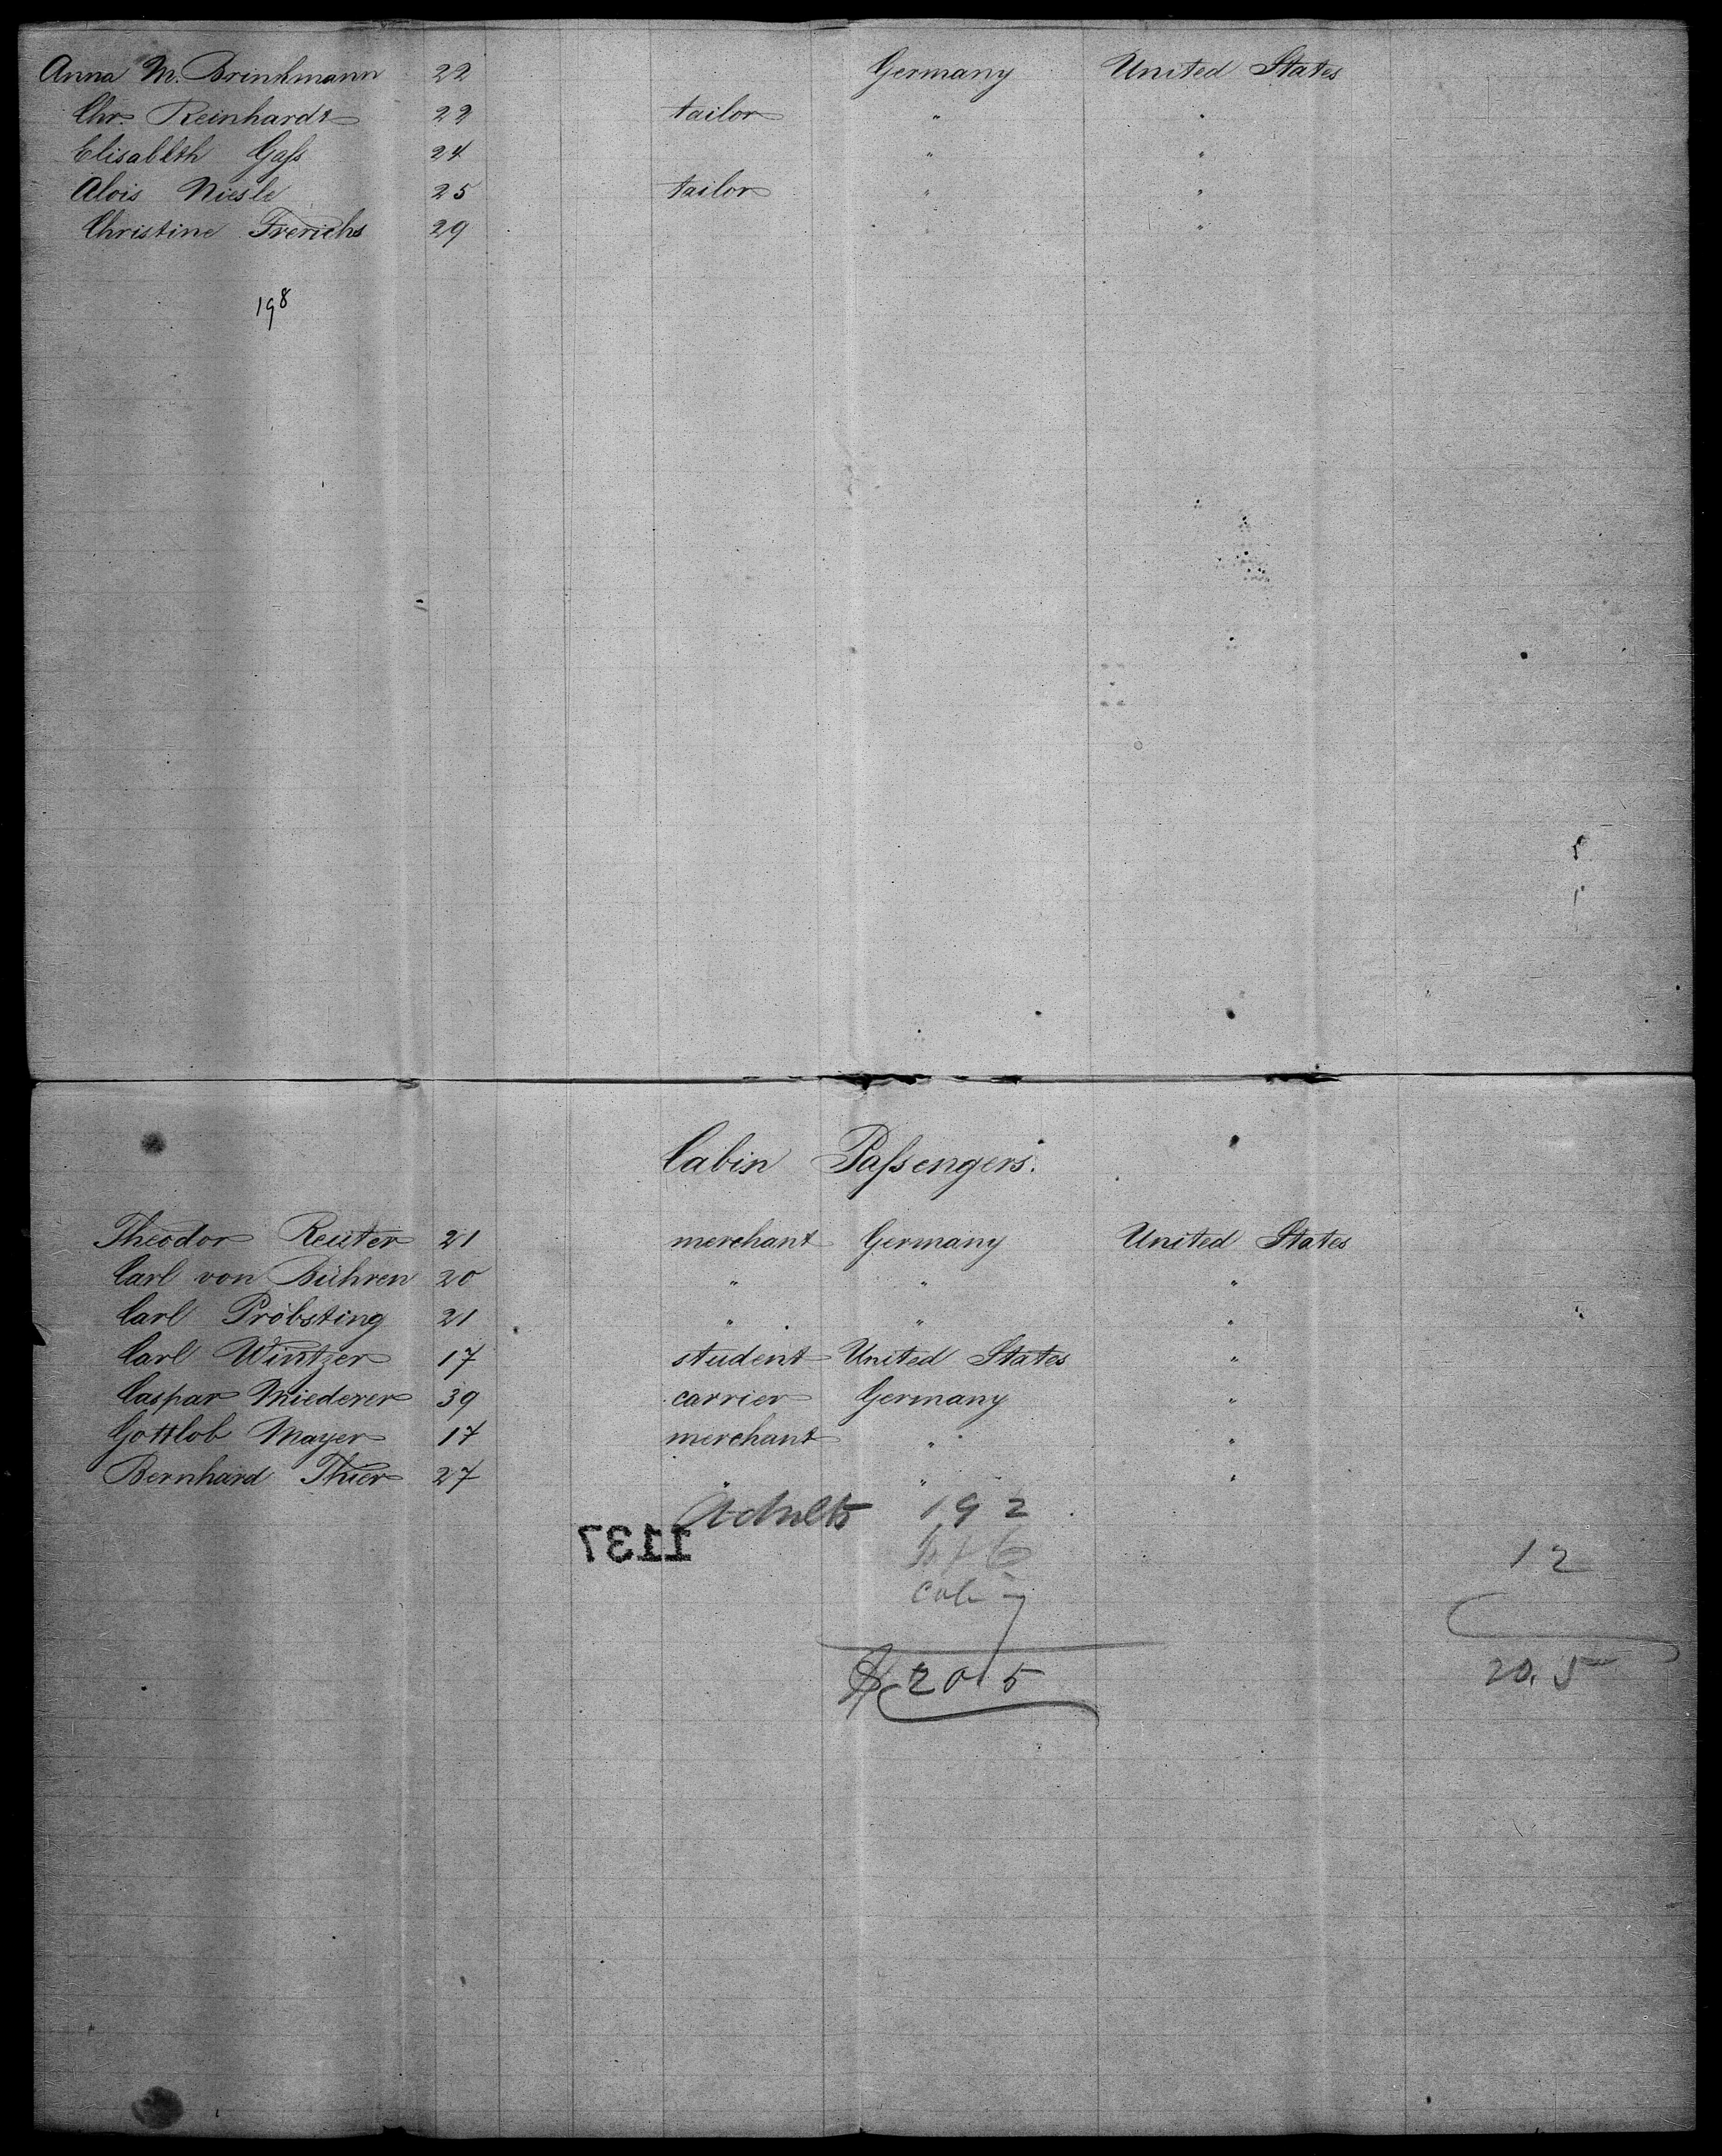 Anna M. Brinkmann 22 Germany United States
Chr. Reinhardt 22 tailor " "
Elisabeth Gaſs 24 " "
Alois Niesle 25 tailor " "
Christine Frerichs 29 " "
198
Cabin Paſsengers.
Theodor Reuter 21 merchant Germany United States
Carl von Bühren 20 " " "
Carl Pröbsting 21 " " "
Carl Wintzer 17 student United States "
Caspar Miederer 39 carrier Germany "
Gottlob Mayer 17 merchant " "
Bernhard Thier 27 " " "
Adults 192
1137
6 12
Cab 7
$ 205 20.5